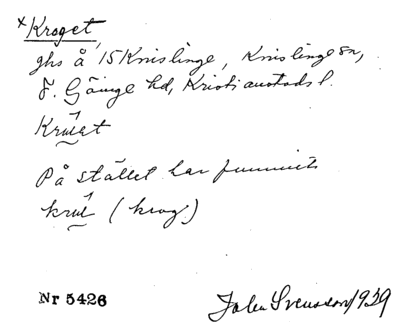 x Kroget
ghs å 15 Knislinge, Knislinge sn,
Ö. Göinge hd, Kristianstads l.
På stället har funnits
(krog)
Nr 5426 John Svensson/1929